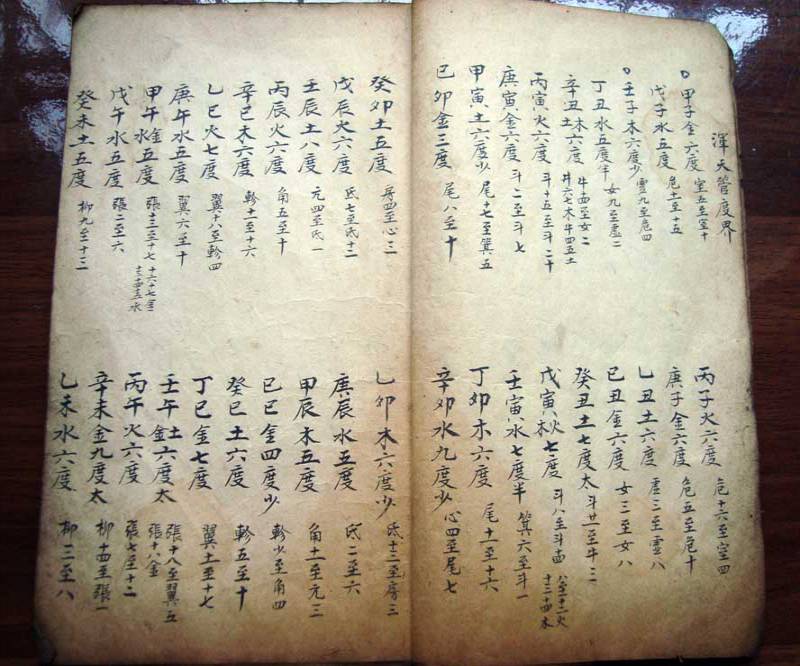 渾天管度界
甲子金六度 室五至室十
丙子火六度 危十六至室四
戊子水五度 危十一至十五
庚子金六度 危五至危十
壬子木六度少 虛九至危四
乙丑土六度 虛三至虛八
丁丑水五度半 女九至虛二
己丑金六度 女三至女八
辛丑土木六度 牛四至女二 牛六七木牛四五土
癸丑土七度太 斗廿一至牛三
丙寅火六度 斗十五至斗二十
戊寅火木七度 斗八至斗十四 八至十二火 十三十四木
庚寅金六度 斗二至斗七
壬寅水七度半 箕六至斗一
甲寅土六度少 尾十七至箕五
丁卯木六度 尾十一至十六
己卯金三度 尾八至十
辛卯水九度少 心四至尾七
癸卯土五度 房四至心三
乙卯木六度少 氐十三至房三
戊辰火六度 氐七至氐十二
庚辰水五度 氐二至六
壬辰土八度 亢四至氐一
甲辰木五度 角十一至亢三
丙辰火六度 角五至十
己巳金四度少 軫少至角四
辛巳木六度 軫十一至十六
癸巳土六度 軫五至十
乙巳火七度 翼十八至軫四
丁巳金七度 翼十一至十七
庚午水五度 翼六至十
壬午土金六度太 張十八至翼五 張十八金
甲午金水五度 張十三至十七 十六十七金 十三十四十五水
丙午火六度 張七至十二
戊午水五度 張二至六
辛未金九度太 柳十四至張一
癸未土五度 柳九至十三
乙未水六度 柳三至八